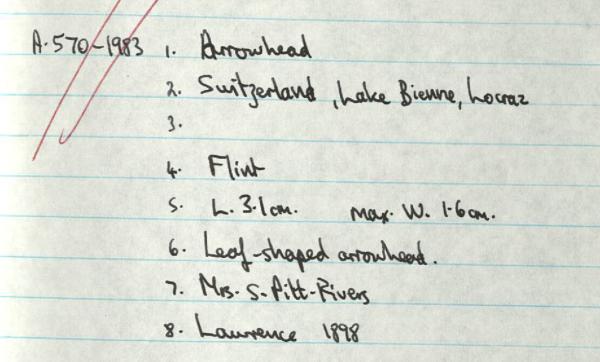 A.570-1983 1. Arrowhead
2. Switzerland, Lake Bienne, Locraz
3.
4. Flint
5. L. 3.1cm. max. W. 1.6cm.
6. Leaf-shaped arrowhead.
7. Mrs. S. Pitt-Rivers
8. Lawrence 1898